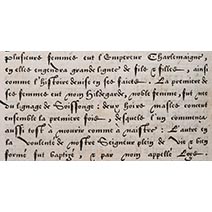 plusieurs femmes eut l'Empereur Charlemaigne,
en elles engendra grande lignee de filz & filles, ainsi
comme l'histoire devise en ses faictz. La premiere de
ses femmes eut nom Hildegarde, noble femme, fut nee
du lignage de Souysonge: deux hoirs masles conceut
ensemble la premiere foie, desquelz l'un commenca
aussi tost a mourir comme a naistre: L'autre en
la voulente de nostre Seigneur plein de vie & bien
forme fut baptizé, & par nom appellé Loys